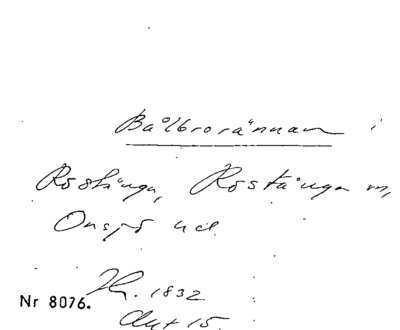 Bålbrorännan i
Röstånga, Röstånga sn,
Onsjö hd.
1832
Nr 8076.